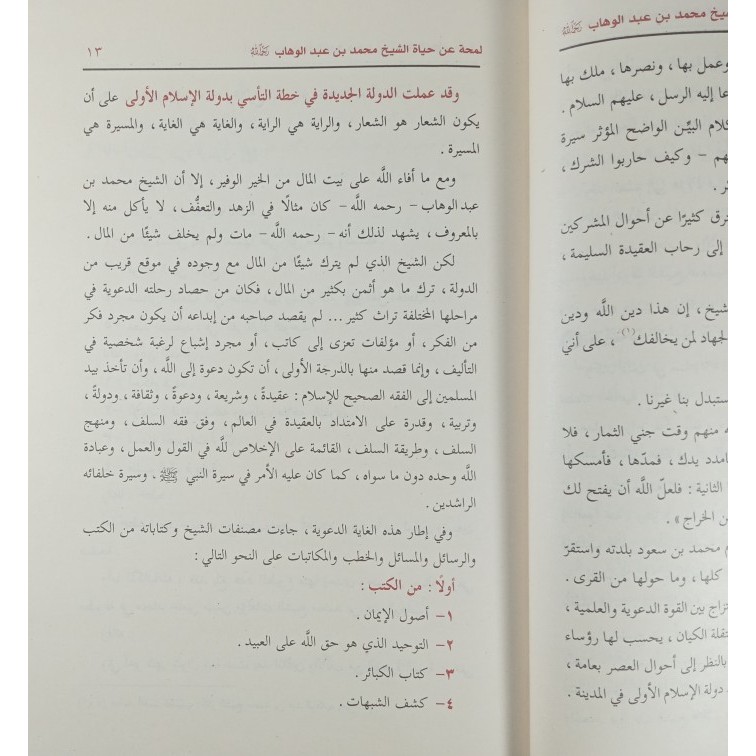 لمحة عن حياة الشيخ محمد بن عبد الوهاب ﵀ ١٣
وقد عملت الدولة الجديدة في خطة التأسي بدولة الإسلام الأولى على أن
يكون الشعار هو الشعار، والراية هي الراية، والغاية هي الغاية، والمسيرة هي
المسيرة .
ومع ما أفاء اللَّه على بيت المال من الخير الوفير، إلا أن الشيخ محمد بن
عبد الوهاب – رحمه اللَّه – كان مثالًا في الزهد والتعفُّف، لا يأكل منه إلا
بالمعروف، يشهد لذلك أنه – رحمه اللَّه – مات ولم يخلف شيئًا من المال .
لكن الشيخ الذي لم يترك شيئًا من المال مع وجوده في موقع قريب من
الدولة، ترك ما هو أثمن بكثير من المال، فكان من حصاد رحلته الدعوية في
مراحلها المختلفة تراث كثير ... لم يقصد صاحبه من إبداعه أن يكون مجرد فكر
من الفكر، أو مؤلفات تعزى إلى كاتب، أو مجرد إشباع لرغبة شخصية في
التأليف، وإنما قصد منها بالدرجة الأولى، أن تكون دعوة إلى اللَّه، وأن تأخذ بيد
المسلمين إلى الفقه الصحيح للإسلام : عقيدةً، وشريعة، ودعوةً، وثقافة، ودولةً،
وتربية، وقدرة على الامتداد بالعقيدة في العالم، وفق فقه السلف، ومنهج
السلف، وطريقة السلف، القائمة على الإخلاص للَّه في القول والعمل، وعبادة
اللَّه وحده دون ما سواه، كما كان عليه الأمر في سيرة النبي ﷺ، وسيرة خلفائه
الراشدين .
وفي إطار هذه الغاية الدعوية، جاءت مصنفات الشيخ وكتاباته من الكتب
والرسائل والمسائل والخطب والمكاتبات على النحو التالي :
أولًا : من الكتب :
١– أصول الإيمان .
٢– التوحيد الذي هو حق اللَّه على العبيد .
٣– كتاب الكبائر .
٤– كشف الشبهات .
محمد بن عبد الوهاب ﵀
وعمل بها، ونصرها، ملك بها
إليه الرسل، عليهم السلام .
البيِّن الواضح المؤثر سيرة
– وكيف حاربوا الشرك،
كثيرًا عن أحوال المشركين
إلى رحاب العقيدة السليمة،
، إن هذا دين اللَّه ودين
لمن يخالفك(١)، على أني
بنا غيرنا .
منهم وقت جني الثمار، فلا
يدك، فمدّها، فأمسكها
الثانية : فلعلّ اللَّه أن يفتح لك
الخراج» .
محمد بن سعود بلدته واستقرّ
كلها، وما حولها من القرى .
بين القوة الدعوية والعلمية،
الكيان، يحسب لها رؤساء
بالنظر إلى أحوال العصر بعامة،
دولة الإسلام الأولى في المدينة .